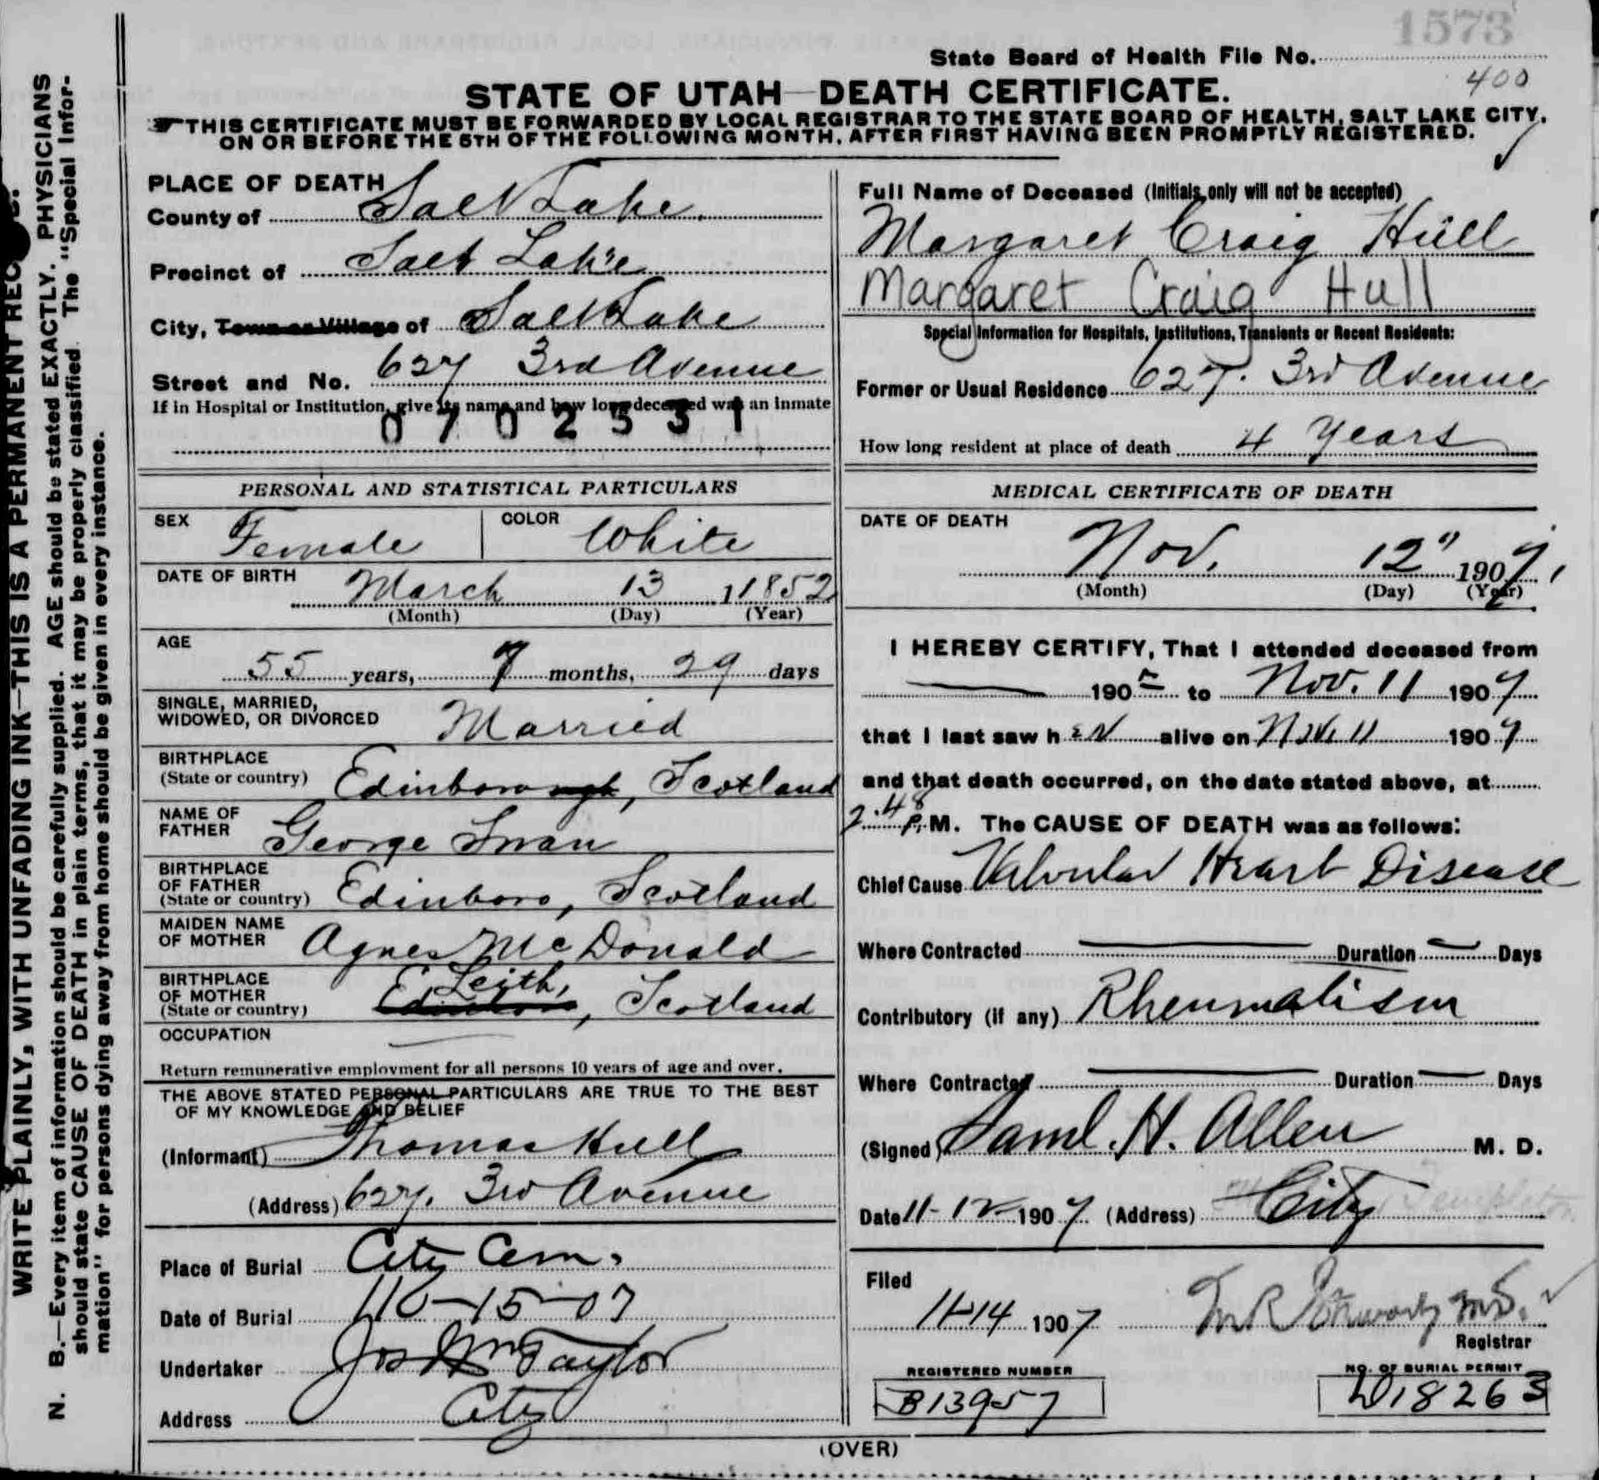 1573
State Board of Health File No.
400
STATE OF UTAH—DEATH CERTIFICATE.
THIS CERTIFICATE MUST BE FORWARDED BY LOCAL REGISTRAR TO THE STATE BOARD OF HEALTH, SALT LAKE CITY,
ON OR BEFORE THE 5TH OF THE FOLLOWING MONTH, AFTER FIRST HAVING BEEN PROMPTLY REGISTERED.
WRITE PLAINLY, WITH UNFADING INK—THIS IS A PERMANENT REC
N. B.—Every item of information should be carefully supplied. AGE should be stated EXACTLY. PHYSICIANS
should state CAUSE OF DEATH in plain terms, that it may be properly classified. The "Special Infor-
mation" for persons dying away from home should be given in every instance.
PLACE OF DEATH
County of Salt Lake.
Precinct of Salt Lake
City, Town or Village of Salt Lake
Street and No. 627 3rd Avenue
If in Hospital or Institution, give its name and how long deceased was an inmate
0702531
PERSONAL AND STATISTICAL PARTICULARS
SEX Female COLOR White
DATE OF BIRTH March 13 1 1852
(Month) (Day) (Year)
AGE
55 years, 7 months, 29 days
SINGLE, MARRIED,
WIDOWED, OR DIVORCED Married
BIRTHPLACE
(State or country) Edinborough, Scotland
NAME OF
FATHER George Swan
BIRTHPLACE
OF FATHER
(State or country) Edinboro, Scotland
MAIDEN NAME
OF MOTHER Agnes McDonald
BIRTHPLACE
OF MOTHER Leith,
(State or country) Edinboro, Scotland
OCCUPATION
Return remunerative employment for all persons 10 years of age and over.
THE ABOVE STATED PERSONAL PARTICULARS ARE TRUE TO THE BEST
OF MY KNOWLEDGE AND BELIEF
(Informant) Thomas Hull
(Address) 627. 3rd Avenue
Place of Burial City Cem.
Date of Burial 11-15-07
Undertaker Jos Wm Taylor
Address City
Full Name of Deceased (Initials only will not be accepted)
Margaret Craig Hull
Margaret Craig Hull
Special Information for Hospitals, Institutions, Transients or Recent Residents:
Former or Usual Residence 627. 3rd Avenue
How long resident at place of death 4 Years
MEDICAL CERTIFICATE OF DEATH
DATE OF DEATH
Nov. 12" 1907,
(Month) (Day) (Year)
I HEREBY CERTIFY, That I attended deceased from
190 to Nov. 11 1907
that I last saw her alive on Nov. 11 1907
and that death occurred, on the date stated above, at
2.48 P.M. The CAUSE OF DEATH was as follows:
Chief Cause Valvular Heart Disease
Where Contracted Duration Days
Contributory (if any) Rheumatism
Where Contracted Duration Days
(Signed) Saml. H. Allen M. D.
Date 11-12-1907 (Address) City
Filed
11-14 1907
Registrar
REGISTERED NUMBER
B13957
NO. OF BURIAL PERMIT
D18263
(OVER)